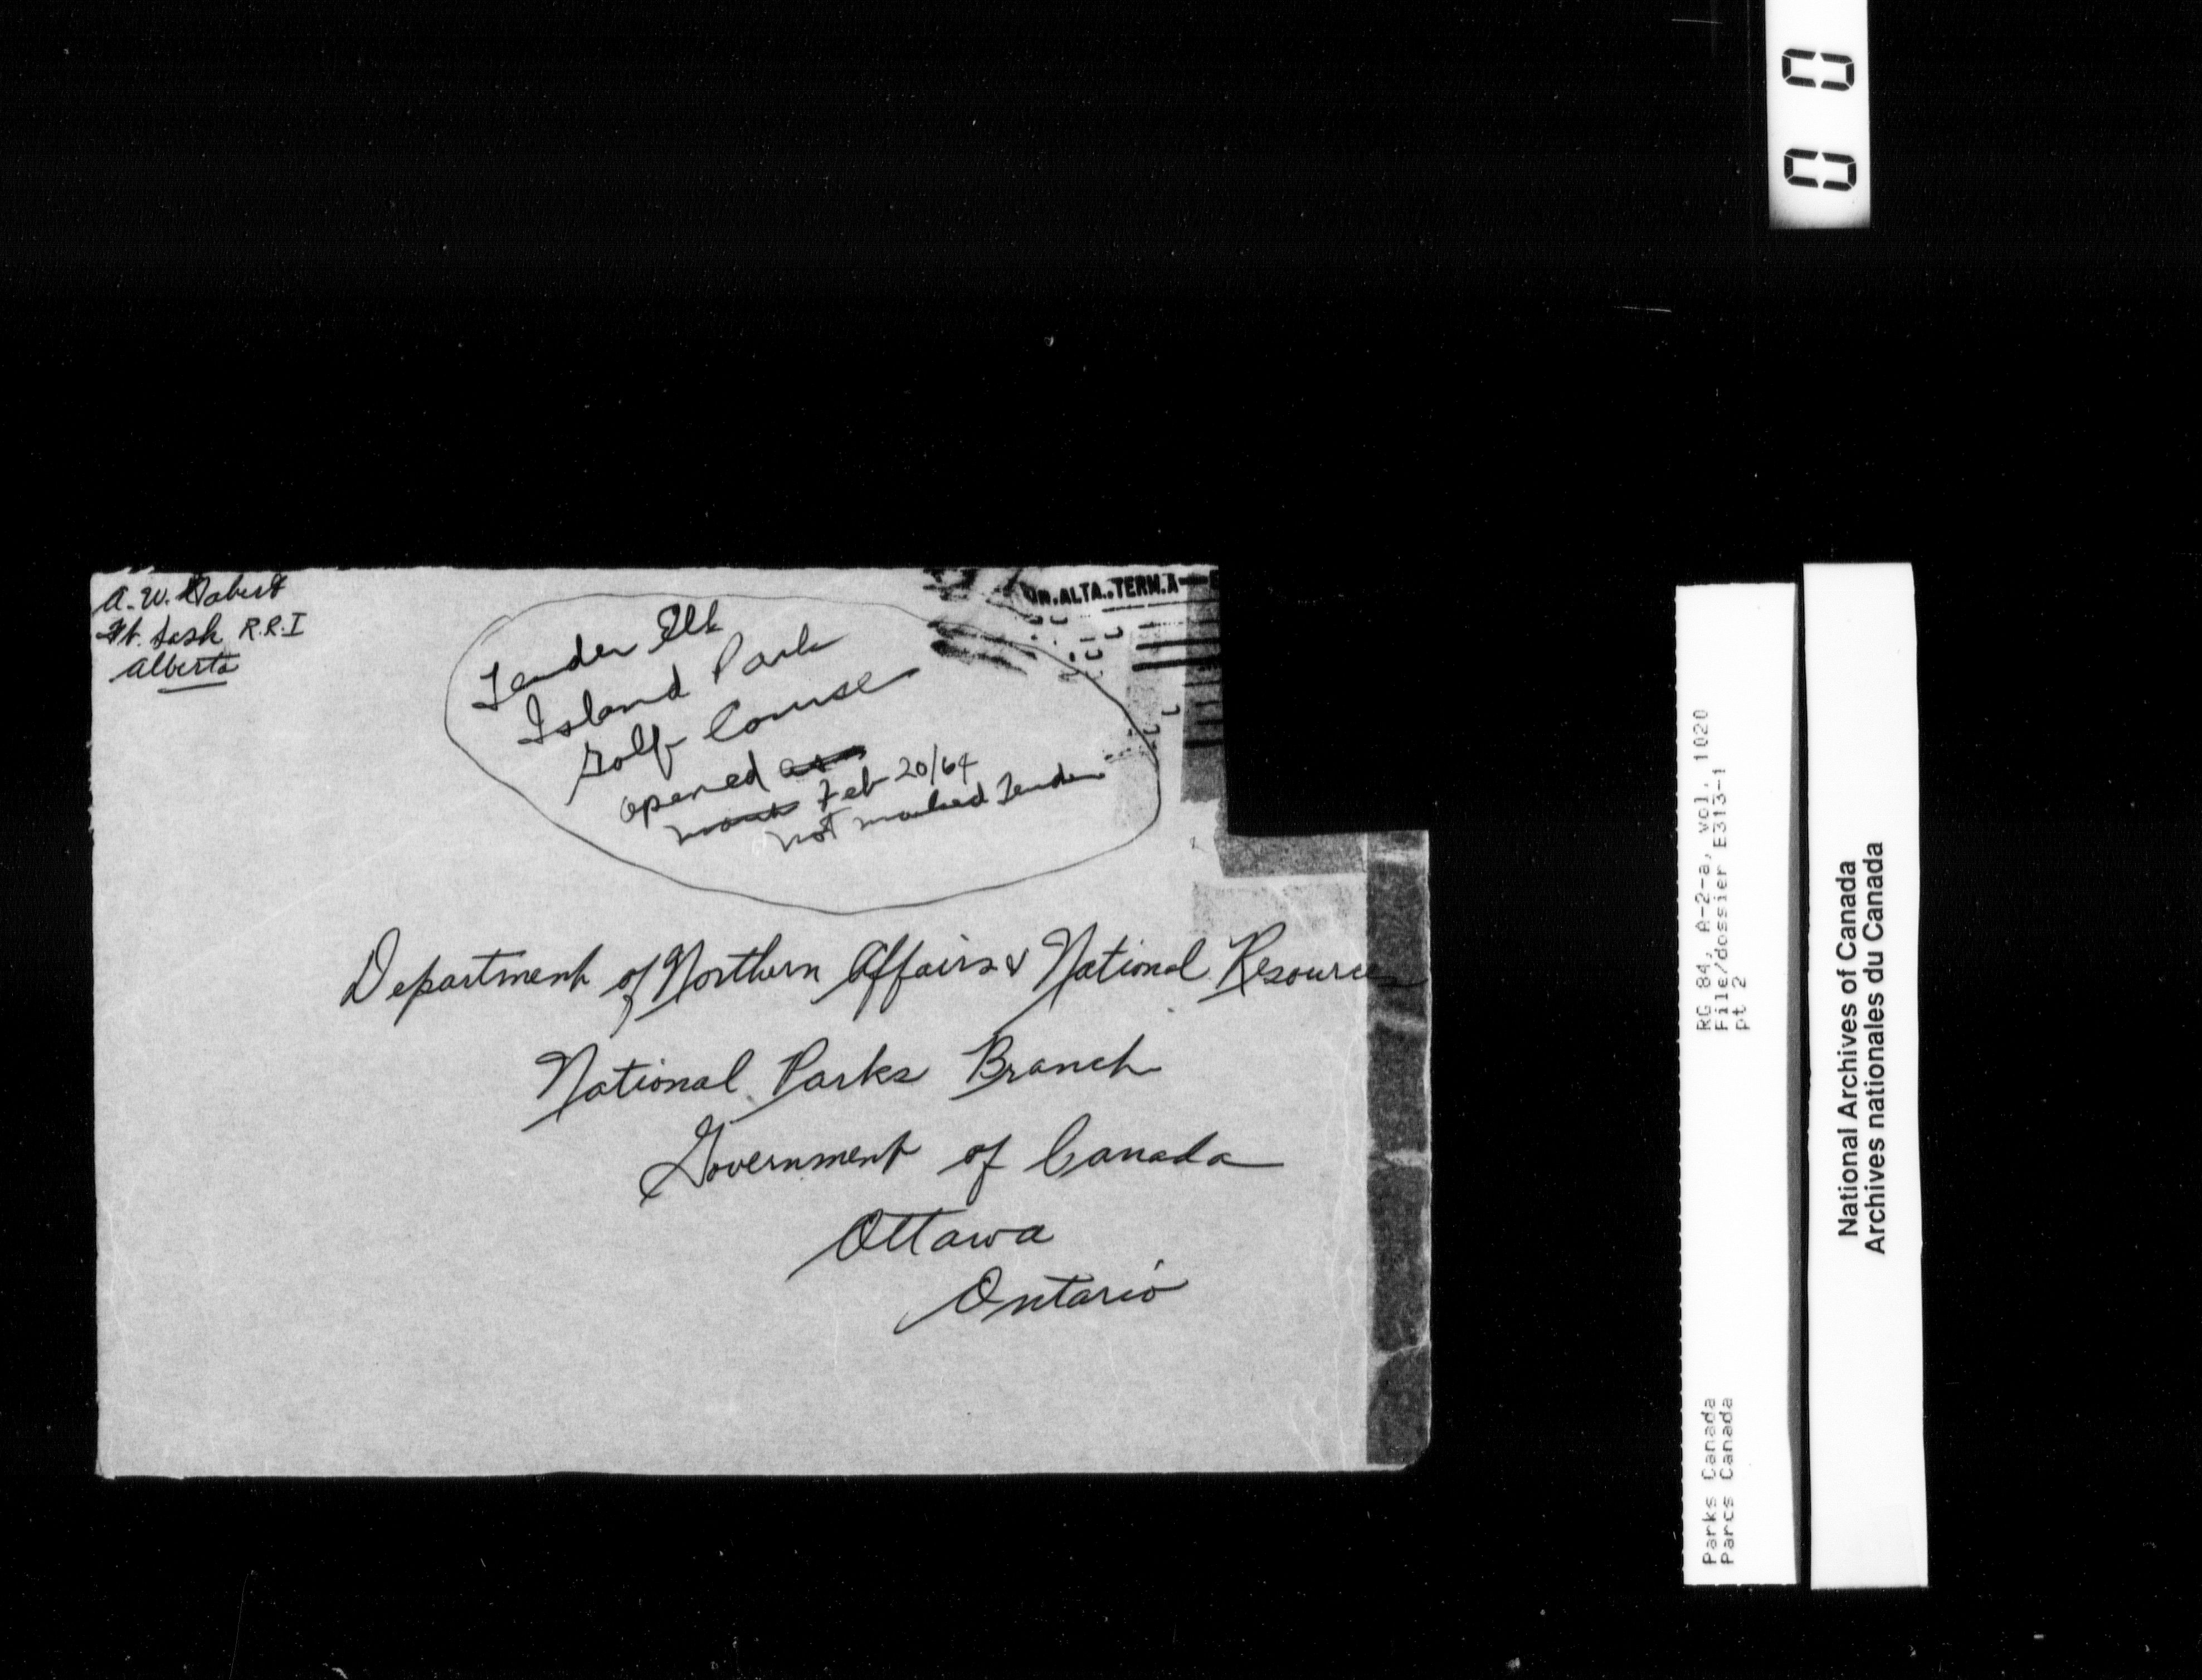 A. W. Dabest
Ft. Sask R.R.I
Alberta
Tender Elk
Island Park
Golf Course
opened as
mark Feb 20/64
not marked Tender
ON. ALTA. TERM. A
Department of Northern Affairs & National Resources
National Parks Branch
Government of Canada
Ottawa
Ontario
RG 84, A-2-a, vol. 1020
File/dossier E313-1
pt 2
Parks Canada
Parcs Canada
National Archives of Canada
Archives nationales du Canada
0 0